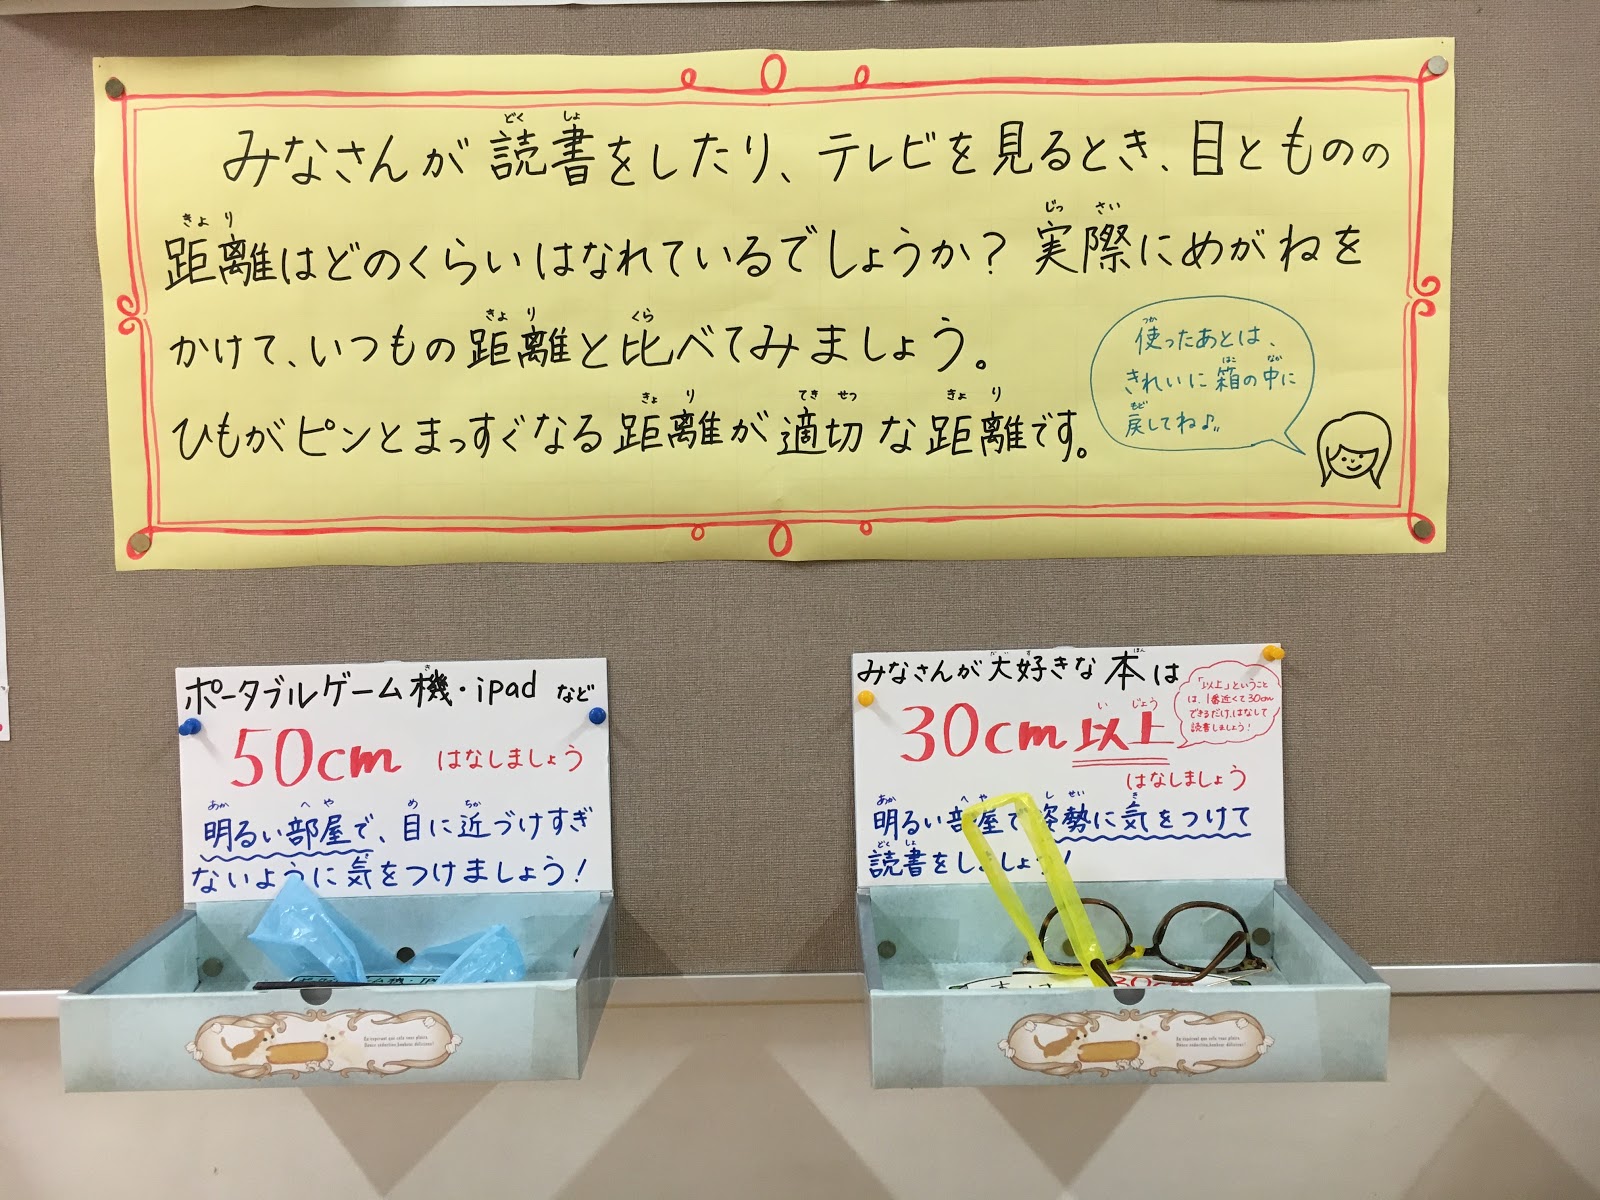 みなさんが読書をしたり、テレビを見るとき、目とものの
距離はどのくらいはなれているでしょうか？実際にめがねを
かけて、いつもの距離と比べてみましょう。
ひもがピンとまっすぐなる距離が適切な距離です。
使ったあとは、
きれいに箱の中に
戻してね♪
ポータブルゲーム機・ipadなど
50cm はなしましょう
明るい部屋で、目に近づけすぎ
ないように気をつけましょう！
みなさんが大好きな本は
30cm以上
はなしましょう
「以上」ということ
は、1番近くて30cm
できるだけ、はなして
読書しましょう！
明るい部屋で姿勢に気をつけて
読書をしましょう！
30cm